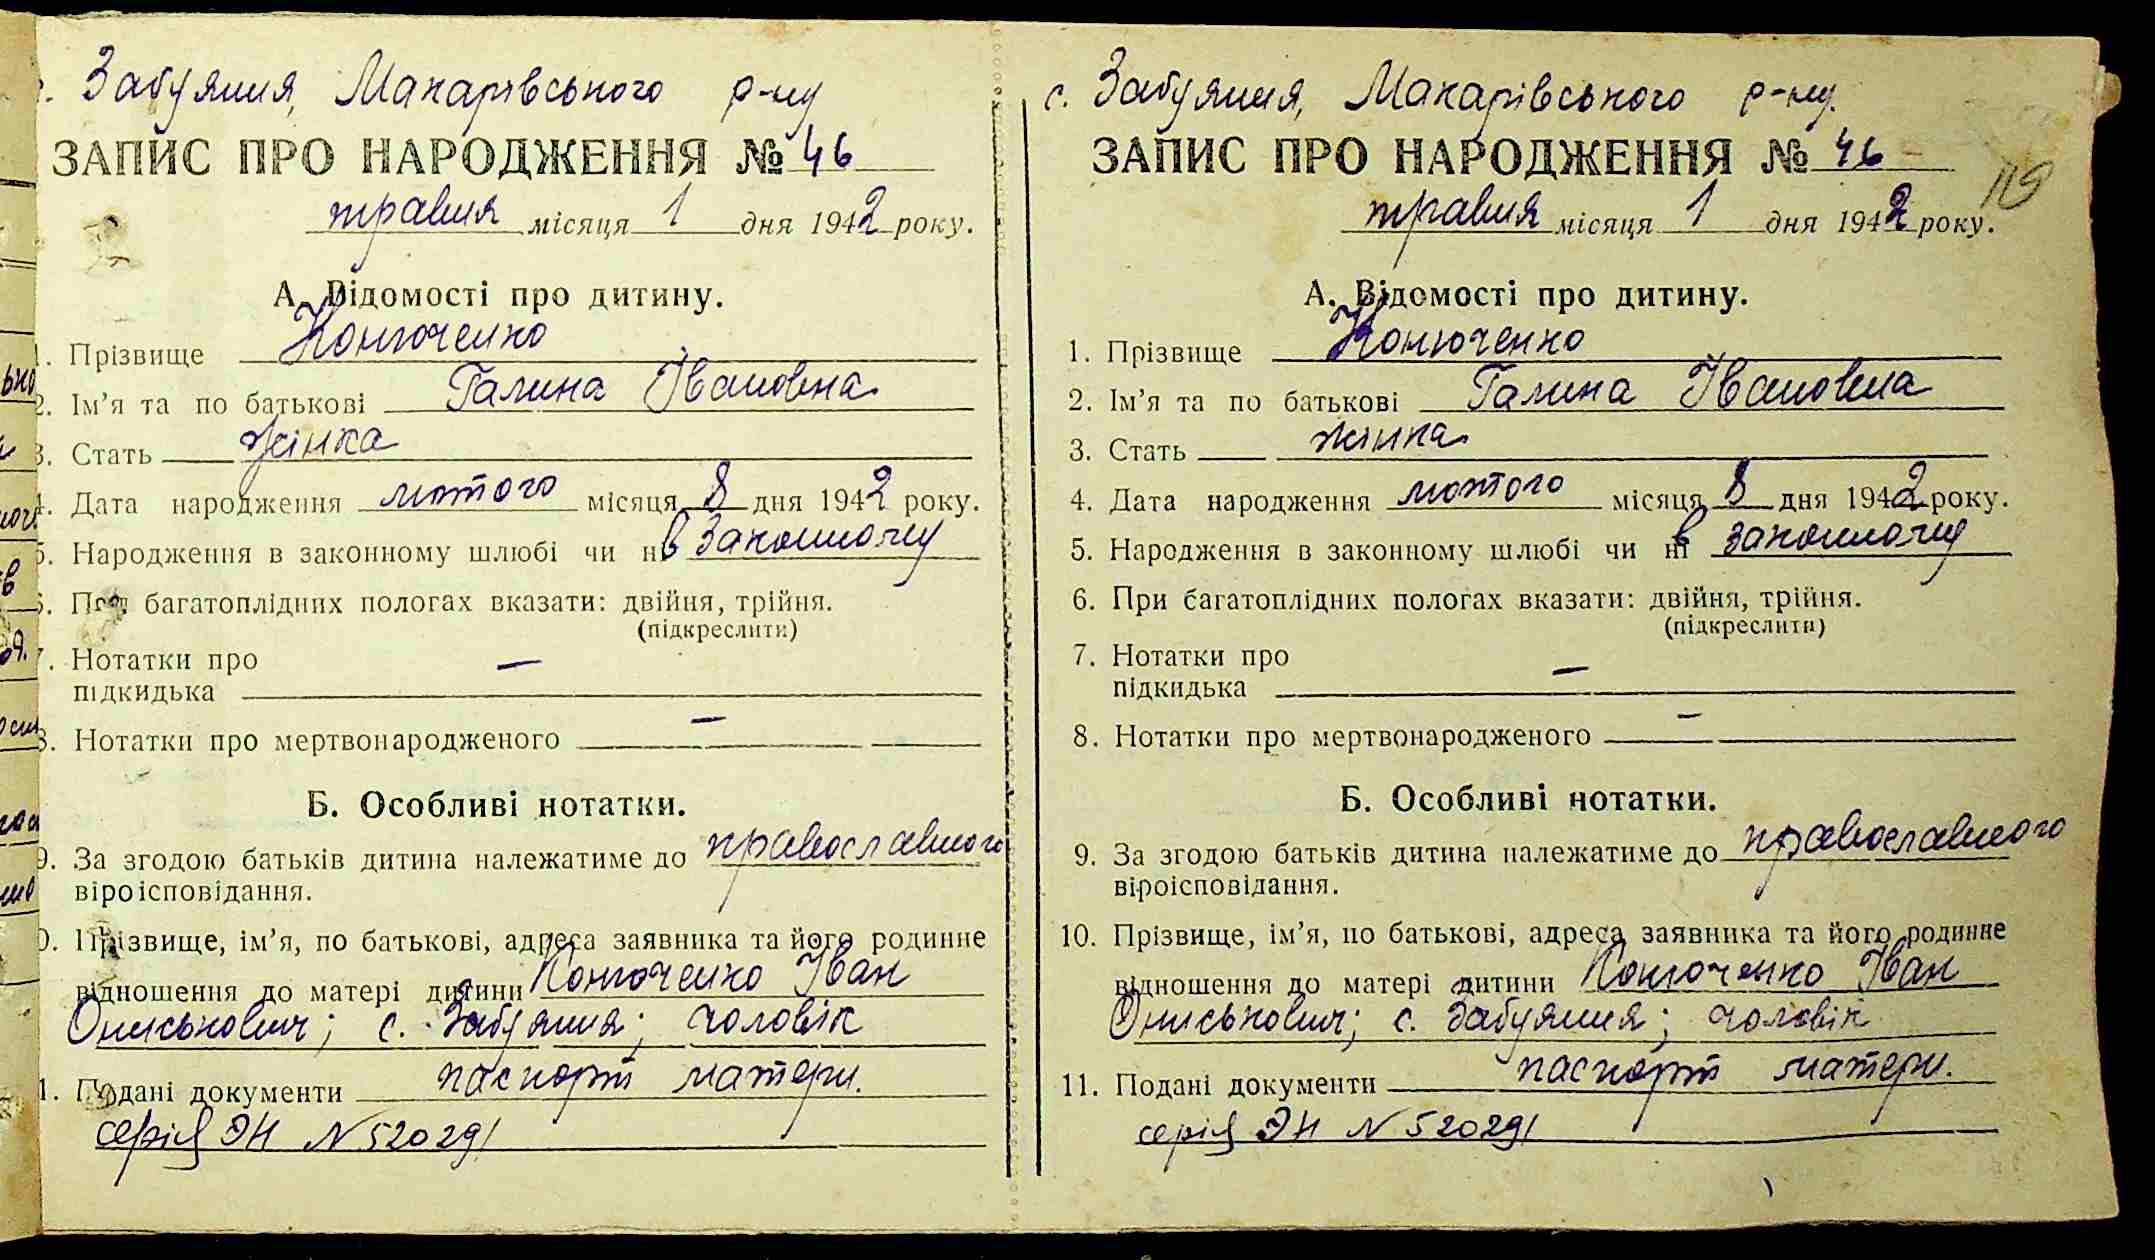 с. Забуяння, Макарівського р-ну
ЗАПИС ПРО НАРОДЖЕННЯ № 46
травня місяця 1 дня 1942 року.
А. Відомості про дитину.
1. Прізвище Конюченко
2. Ім'я та по батькові Галина Івановна
3. Стать жінка
4. Дата народження лютого місяця 8 дня 1942 року.
5. Народження в законному шлюбі чи ні в законному
6. При багатоплідних пологах вказати: двійня, трійня.
(підкреслити)
7. Нотатки про
підкидька —
8. Нотатки про мертвонародженого —
Б. Особливі нотатки.
9. За згодою батьків дитина належатиме до православного
віроісповідання.
10. Прізвище, ім'я, по батькові, адреса заявника та його родинне
відношення до матері дитини Конюченко Іван
Ониськович; с. Забуяння; чоловік
11. Подані документи паспорт матери.
серія ЭН N 520291
с. Забуяння, Макарівського р-ну.
ЗАПИС ПРО НАРОДЖЕННЯ № 46
119
травня місяця 1 дня 1942 року.
А. Відомості про дитину.
1. Прізвище Конюченко
2. Ім'я та по батькові Галина Івановна
3. Стать жінка
4. Дата народження лютого місяця 8 дня 1942 року.
5. Народження в законному шлюбі чи ні в законному
6. При багатоплідних пологах вказати: двійня, трійня.
(підкреслити)
7. Нотатки про
підкидька —
8. Нотатки про мертвонародженого —
Б. Особливі нотатки.
9. За згодою батьків дитина належатиме до православного
віроісповідання.
10. Прізвище, ім'я, по батькові, адреса заявника та його родинне
відношення до матері дитини Конюченко Іван
Ониськович; с. Забуяння; чоловік
11. Подані документи паспорт матери.
серія ЭН N 520291